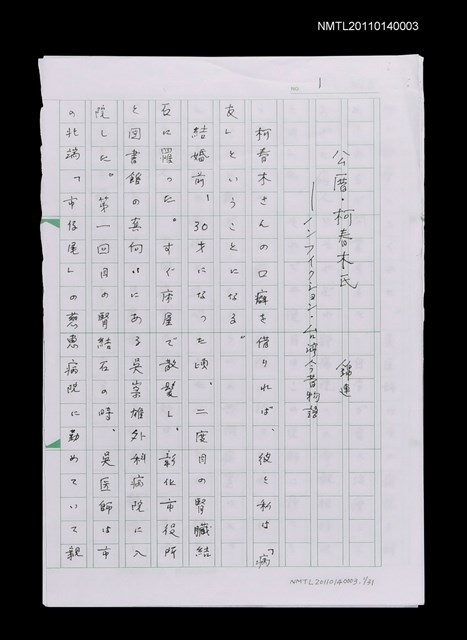 NMTL20110140003
NO. 1
公厝・柯春木氏
錦連
―ノンフィクション・台湾今昔物語
柯春木さんの口癖を借りれば、彼と私は「病
友」ということになる。
結婚前、30才になった頃、二度目の腎臓結
石に罹った。すぐ床屋で散髪し、彰化市役所
と図書館の真向いにある呉崇雄外科病院に入
院した。第一回目の腎結石の時、呉医師は市
の北端「市仔尾」の慈惠病院に勤めていて親
NMTL20110140003. 1/31